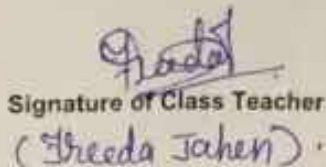 Signature of Class Teacher
(Freeda Jahen).